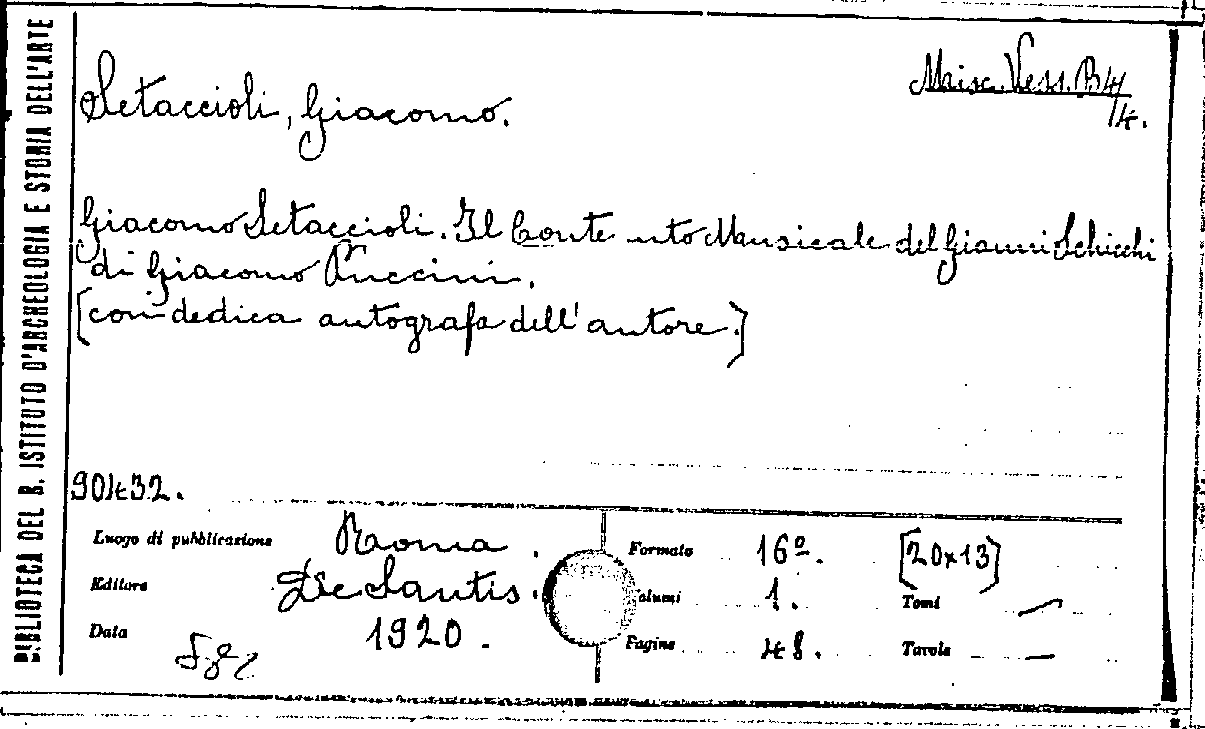 BIBLIOTECA DEL R. ISTITUTO D'ARCHEOLOGIA E STORIA DELL'ARTE
Setaccioli, Giacomo.
Misc. Vess. B 4/
/4.
Giacomo Setaccioli. Il Conte nuto Musicale del Gianni Schicchi
di Giacomo Puccini.
[con dedica autografa dell'autore.]
90432.
Luogo di pubblicazione Roma.
Editore De Santis.
Data 1920.
Formato 16º. [20x13]
Volumi 1. Tomi —
Pagine 48. Tavole —